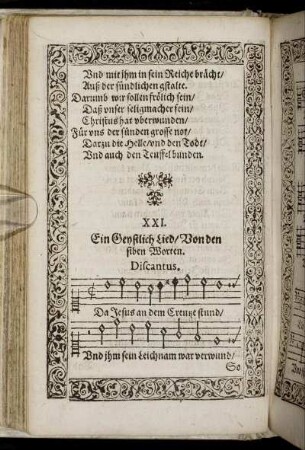 Vnd mit jhm in sein Reiche brächt/
Auß der sündlichen gstalte.
Darumb wir sollen frölich sein/
Daß vnser seligmacher fein/
Christus hat vberwunden/
Für vns der sünden grosse not/
Darzu die Helle/vnd den Todt/
Vnd auch den Teuffel bunden.
XXI.
Ein Geystlich Lied/Von den
siben Worten.
Discantus.
Da Jesus an dem Creutze stund/
Vnd jhm sein Leichnam war verwund/
So